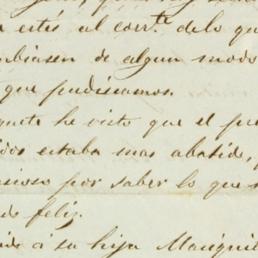 estés al corr.te delo qu
nbiasen de algun modo
que pudiesamos.
quete he visto que el pre
dos estaba mas abatido,
sioso por saber lo que
do feliz.
á su hija Mariqui